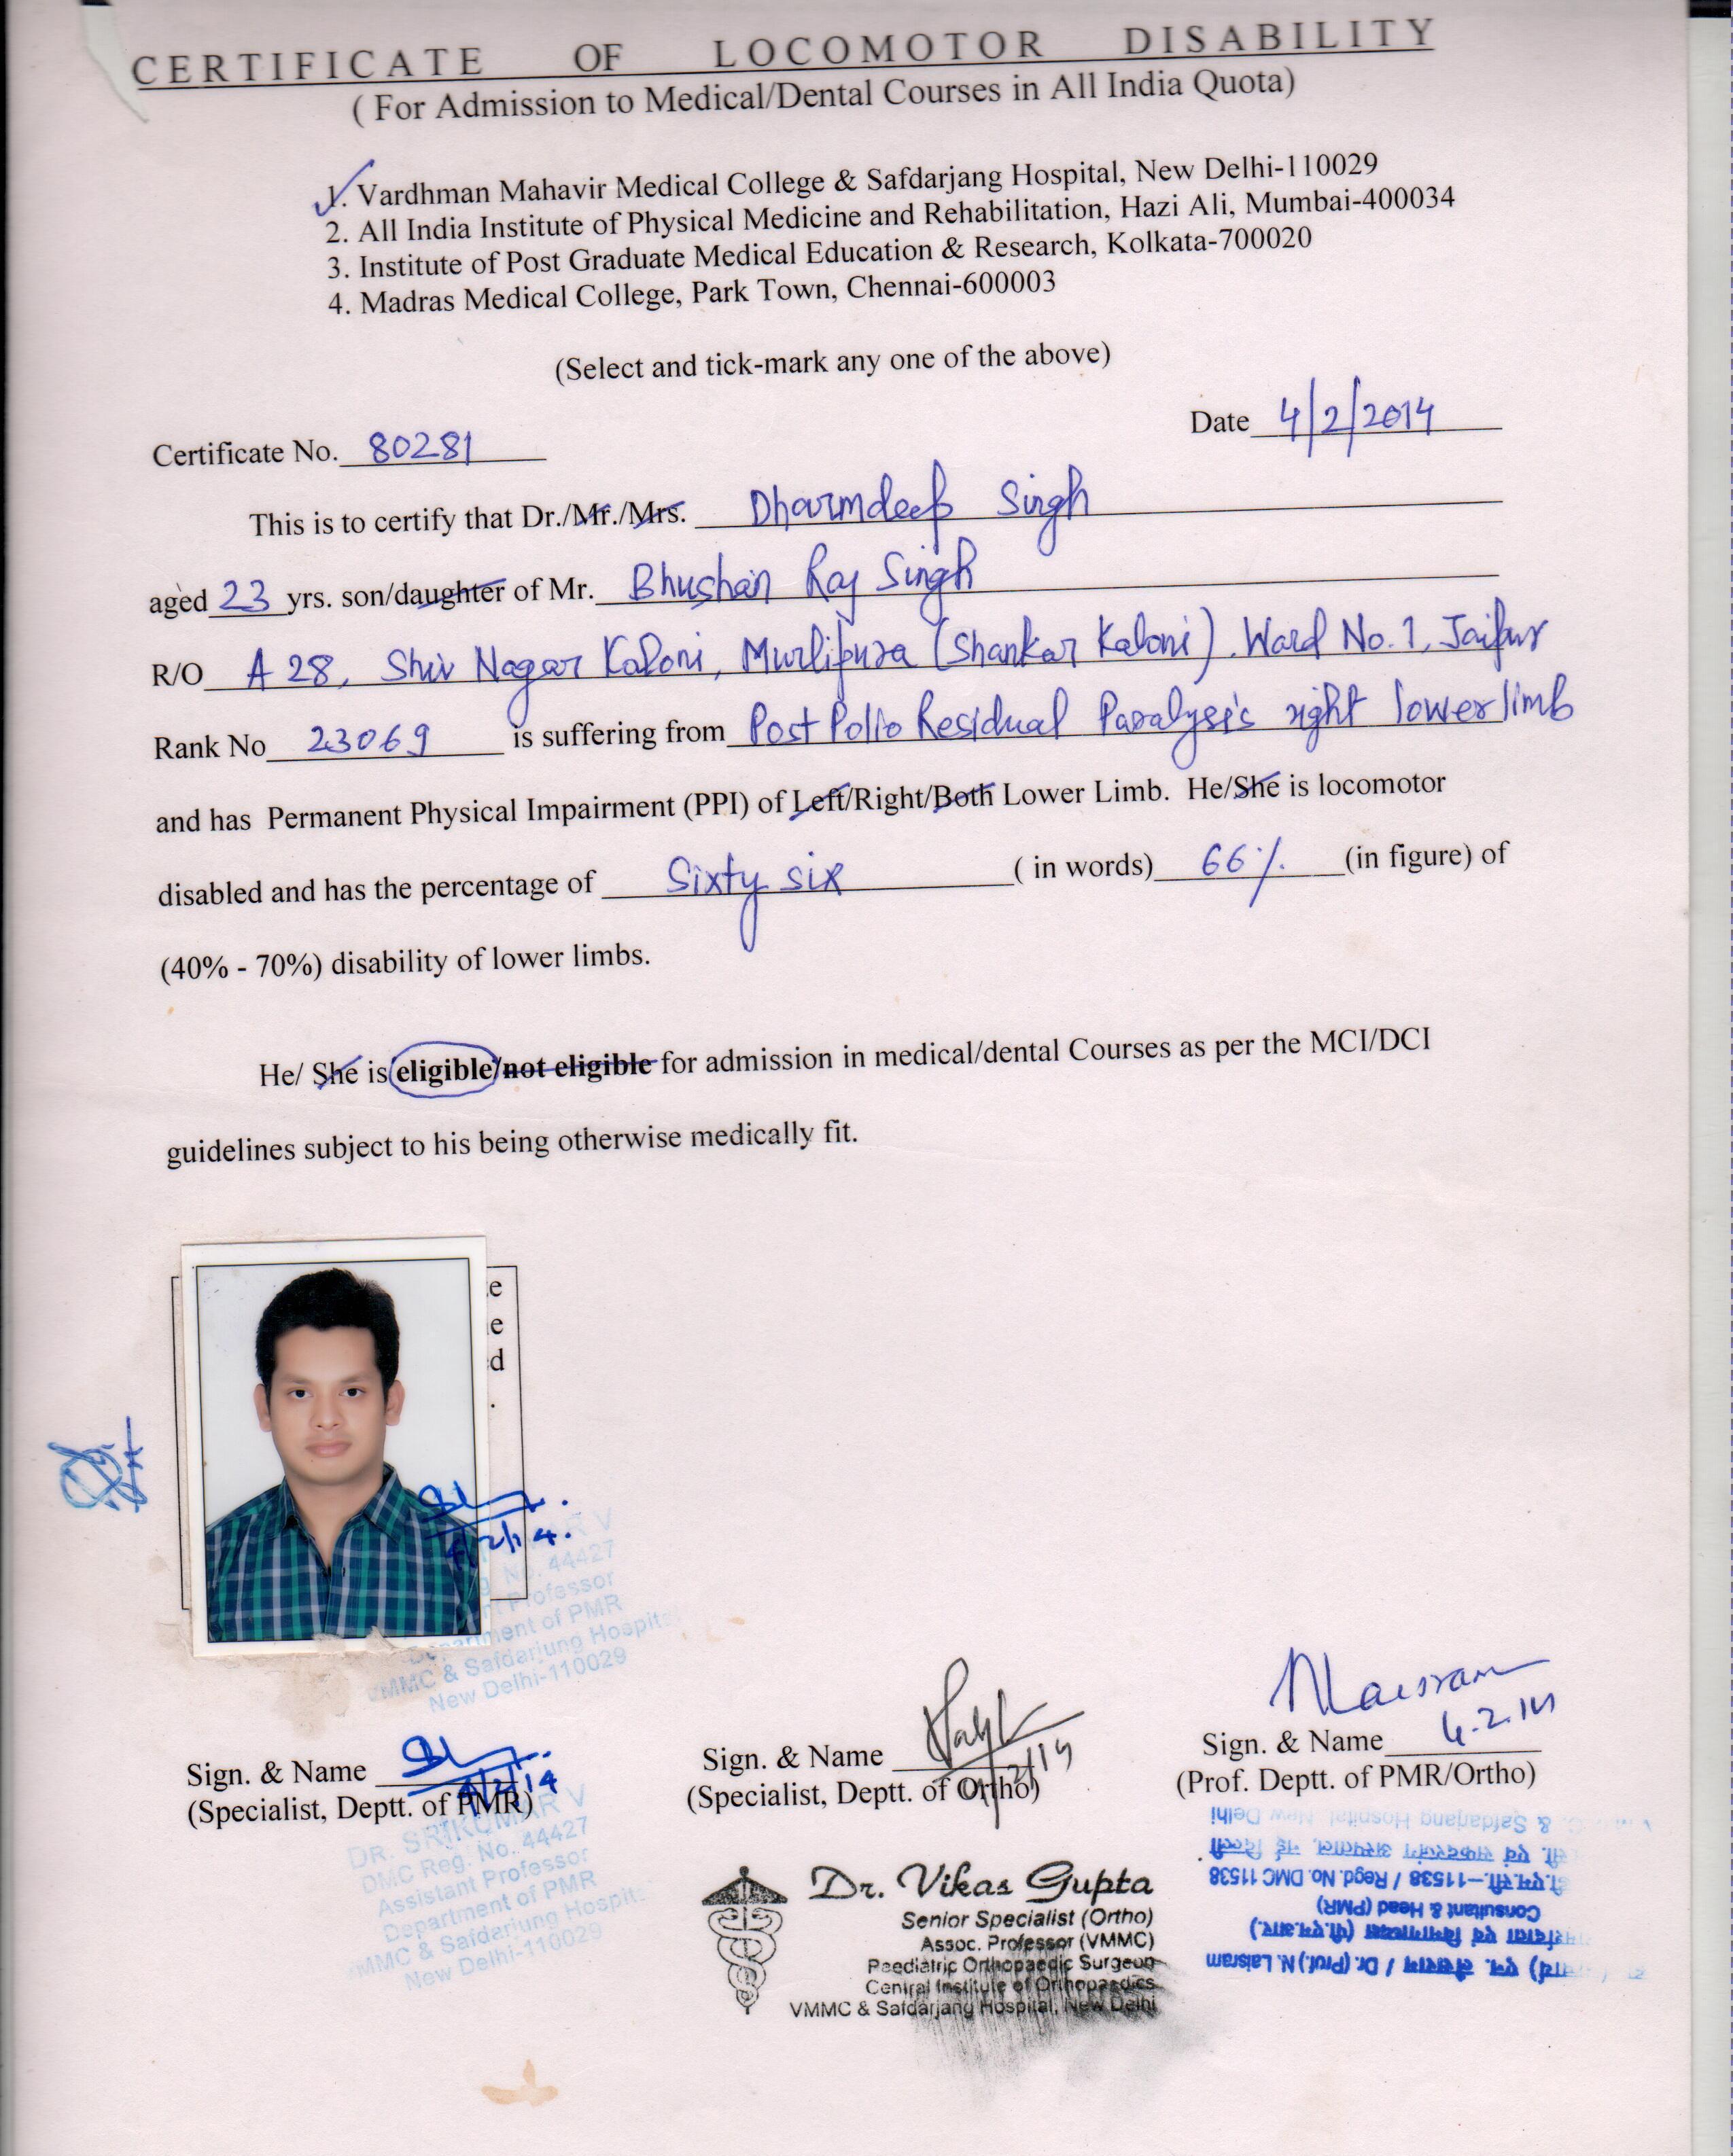 CERTIFICATE OF LOCOMOTOR DISABILITY
( For Admission to Medical/Dental Courses in All India Quota)
1. Vardhman Mahavir Medical College & Safdarjang Hospital, New Delhi-110029
2. All India Institute of Physical Medicine and Rehabilitation, Hazi Ali, Mumbai-400034
3. Institute of Post Graduate Medical Education & Research, Kolkata-700020
4. Madras Medical College, Park Town, Chennai-600003
(Select and tick-mark any one of the above)
Date 4/2/2014
Certificate No. 80281
This is to certify that Dr./Mr./Mrs. Dharmdeep Singh
aged 23 yrs. son/daughter of Mr. Bhushan Raj Singh
R/O A 28, Shiv Nagar Kaloni, Murlipura (Shankar Kaloni). Ward No.1, Jaipur
Rank No 23069 is suffering from Post Polio Residual Paralysis right lower limb
and has Permanent Physical Impairment (PPI) of Left/Right/Both Lower Limb. He/She is locomotor
disabled and has the percentage of Sixty six ( in words) 66% (in figure) of
(40% - 70%) disability of lower limbs.
He/ She is eligible/not eligible for admission in medical/dental Courses as per the MCI/DCI
guidelines subject to his being otherwise medically fit.
e
e
d
.
4/2/14.
R V
No. 44427
Professor
Department of PMR
VMMC & Safdarjung Hospital
New Delhi-110029
Sign. & Name 4/2/14
(Specialist, Deptt. of PMR)
DR. SRIKUMAR V
DMC Reg. No. 44427
Assistant Professor
Department of PMR
VMMC & Safdarjung Hospital
New Delhi-110029
Sign. & Name
(Specialist, Deptt. of Ortho)
Dr. Vikas Gupta
Senior Specialist (Ortho)
Assoc. Professor (VMMC)
Paediatric Orthopaedic Surgeon
Central Institute of Orthopaedics
VMMC & Safdarjang Hospital, New Delhi
Nlaisram
Sign. & Name 4.2.14
(Prof. Deptt. of PMR/Ortho)
एन. लैसराम / Dr. (Prof.) N. Laisram
एवं विभागाध्यक्ष (पी.एम.आर.)
Consultant & Head (PMR)
डी.एम.सी.–11538 / Regd. No. DMC 11538
एवं सफदरजंग अस्पताल, नई दिल्ली
& Safdarjang Hospital, New Delhi